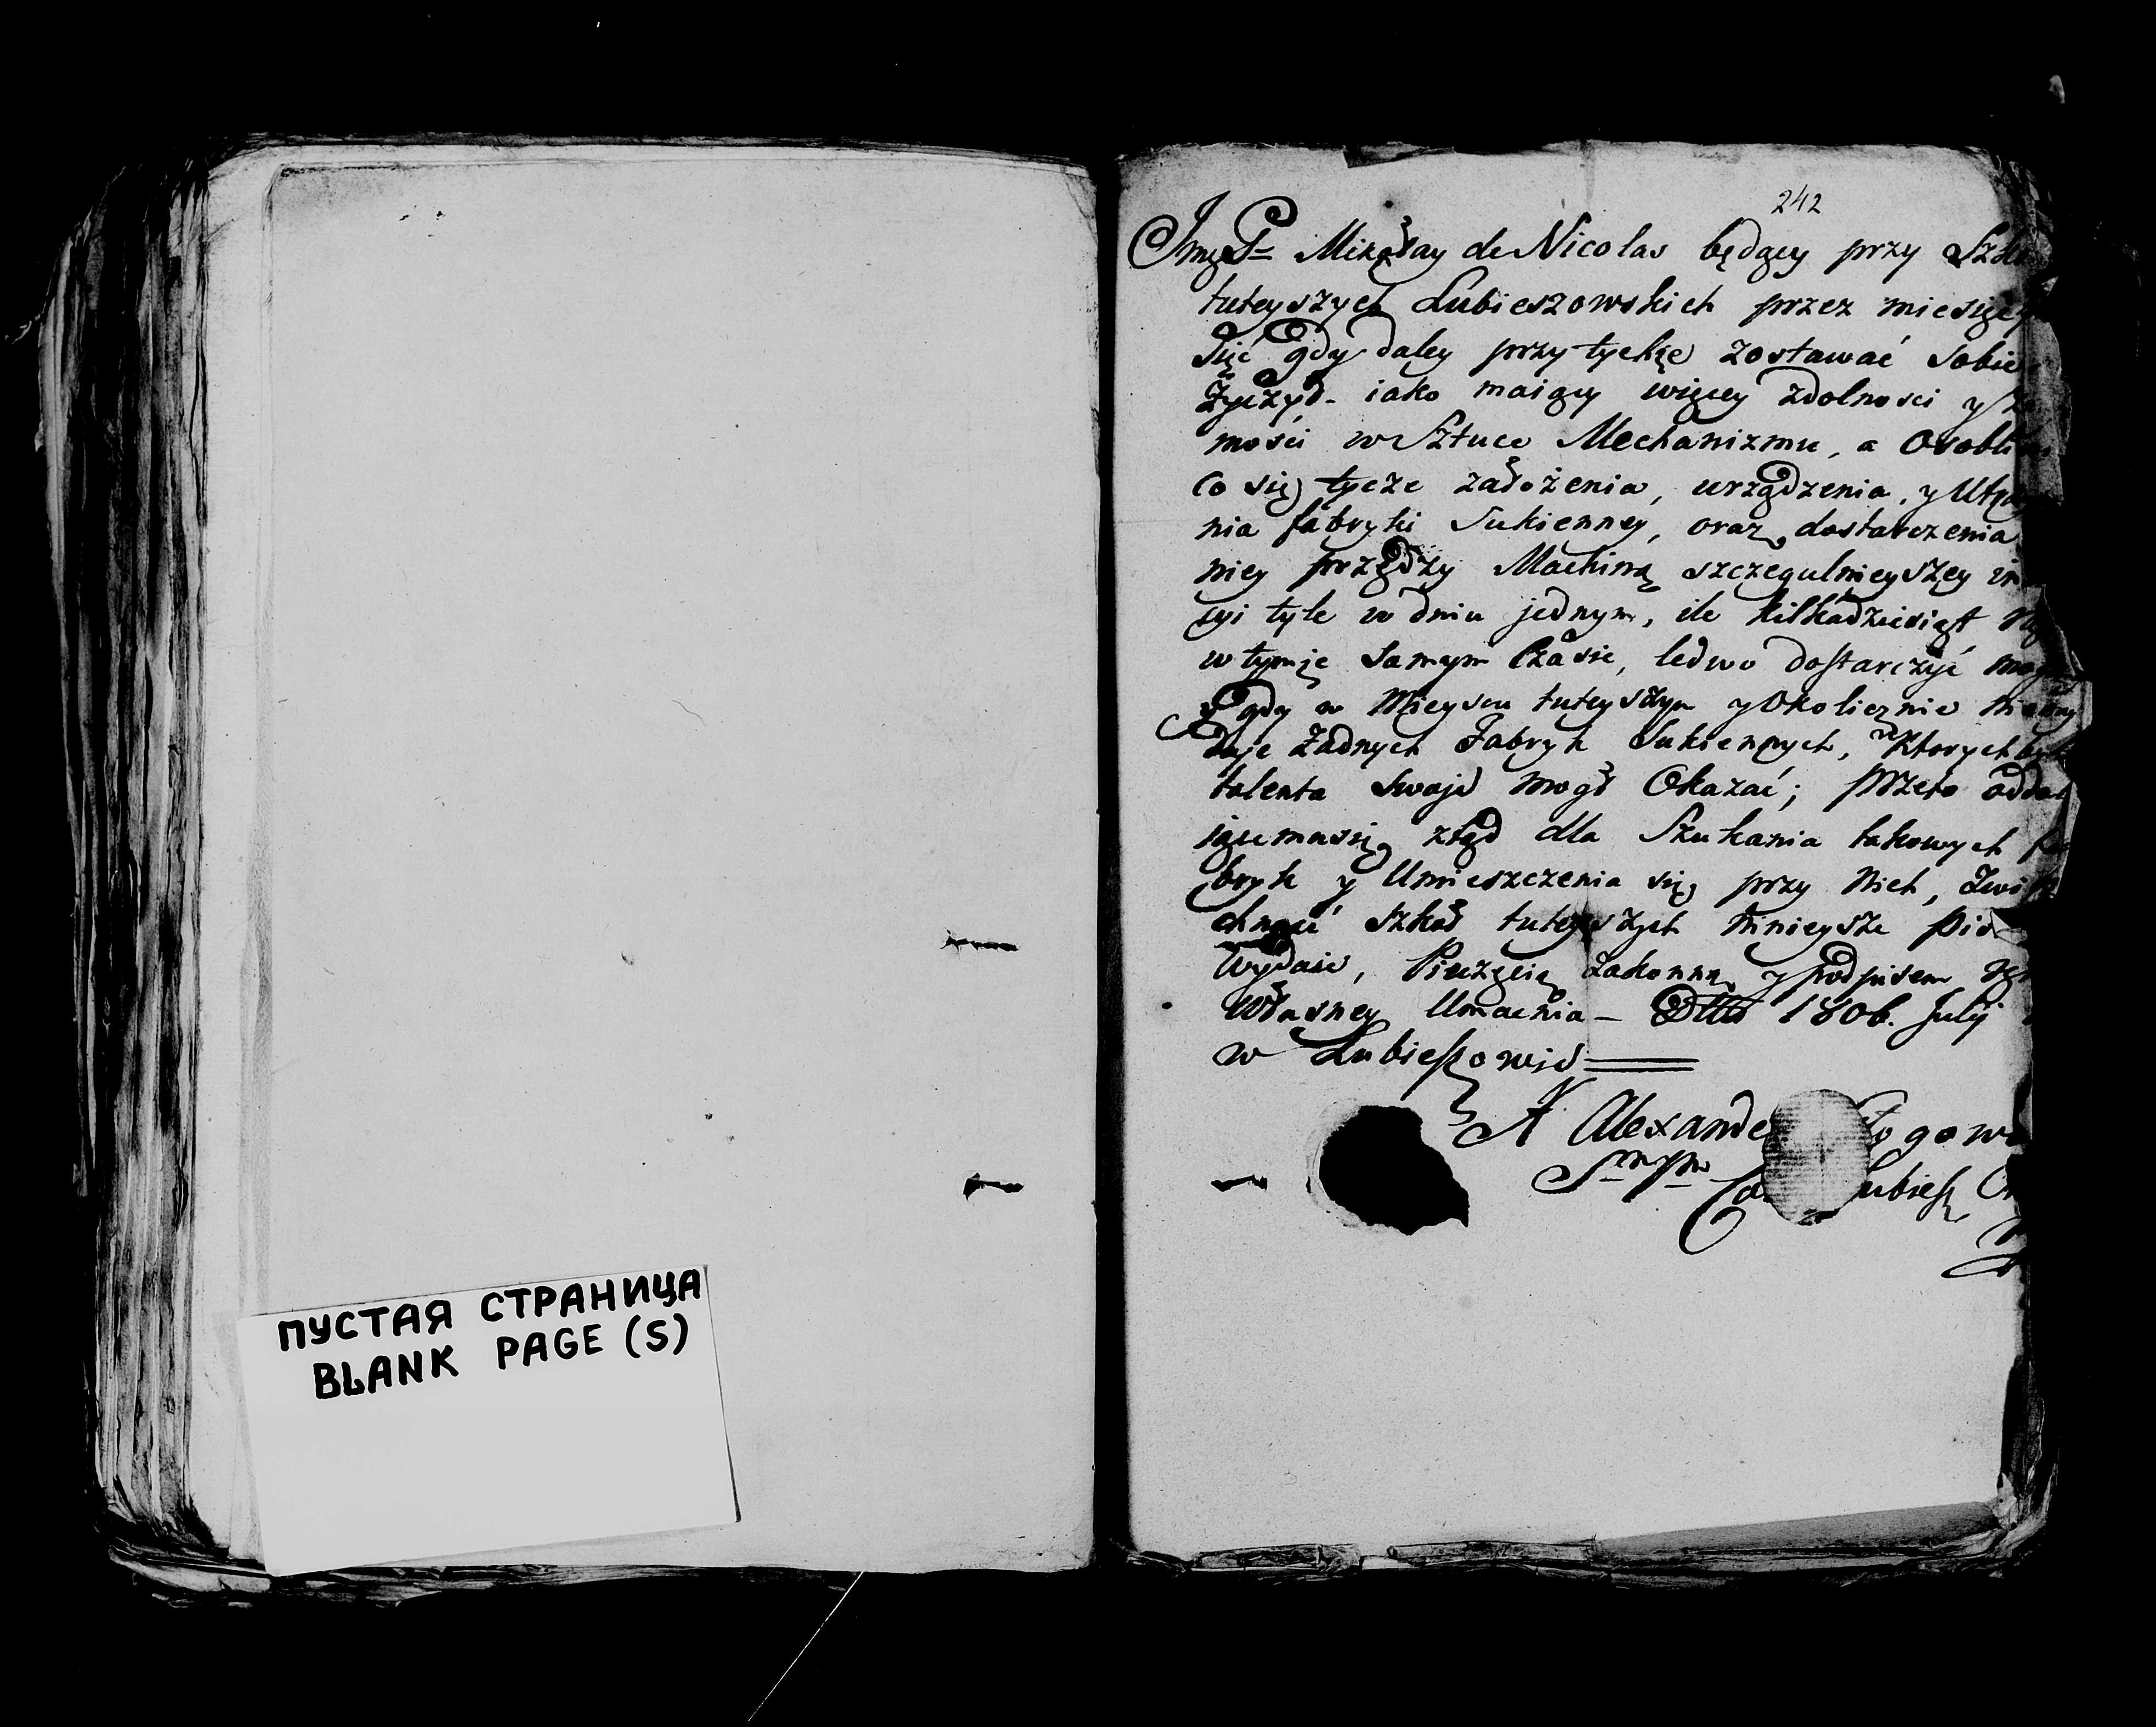 ПУСТАЯ СТРАНИЦА
BLANK PAGE (S)
242
Mikołay de Nicolas będący przy
tuteyszych Lubieszowskich przez miesięcy
gdy daley przy tychże zostawać Sobie
iako maiący więcey zdolności y
mości w Sztuce Mechanizmu, a
co się tycze założenia, urządzenia, y
nia fabryki Sukienney, oraz dostarczenia
niey przędzy Machiną szczegulnieyszey
cyi tyle w dniu jednym, ile kilkadziesiąt
w tymże samym Czasie, ledwo dostarczyć
y gdy w Mieyscu tuteyszym y Okolicznie
duje Żadnych Fabryk Sukiennych, w ktorych by
talenta swoje mogł Okazać; przeto
jącemu się ztąd dla Szukania takowych
bryk y Umieszczenia się przy Nich,
chność szkoł tuteyszych Ninieysze
wydaie, Pieczęcią Zakonną y podpisem
Własney Umacnia — Dtto 1806. July
w Lubieszowie
X Alexande